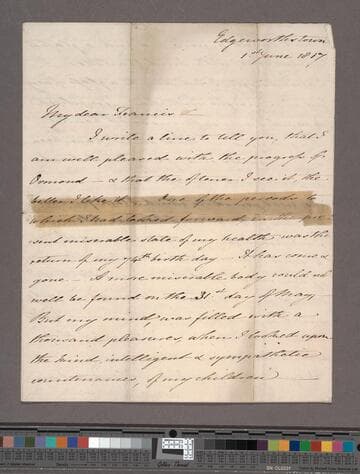 Edgeworthstown
1st June 1817
My dear Francis
I write a line to tell you, that I
am well pleased with the progress of
Ormond — & that the oftener I see it, the
better I like it — One of the periods to
which I had looked forward in the pre-
sent miserable state of my health was the
return of my 74th birth day — It has come &
gone — A more miserable body could not
well be found on the 31st day of May
But my mind, was filled with a
thousand pleasures, when I looked upon
the kind, intelligent & sympathetic
countenances, of my children